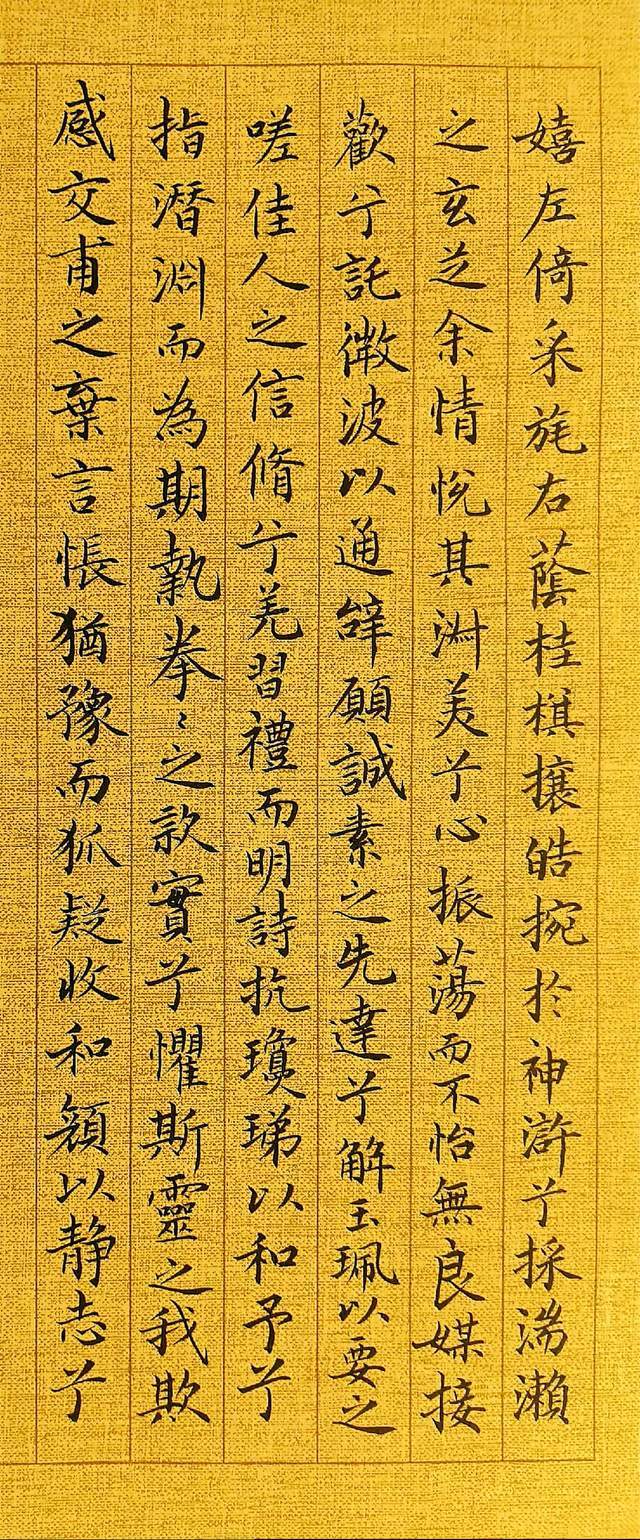 嬉左倚采旄右蔭桂棋攘皓捥於神滸兮採湍瀨
之玄芝余情悅其淑美兮心振蕩而不怡無良媒接
歡兮託微波以通辭願誠素之先達兮解玉珮以要之
嗟佳人之信脩兮羌習禮而明詩抗瓊珶以和予兮
指潛淵而為期執拳〻之款實兮懼斯靈之我欺
感交甫之棄言悵猶豫而狐疑收和顏以静志兮